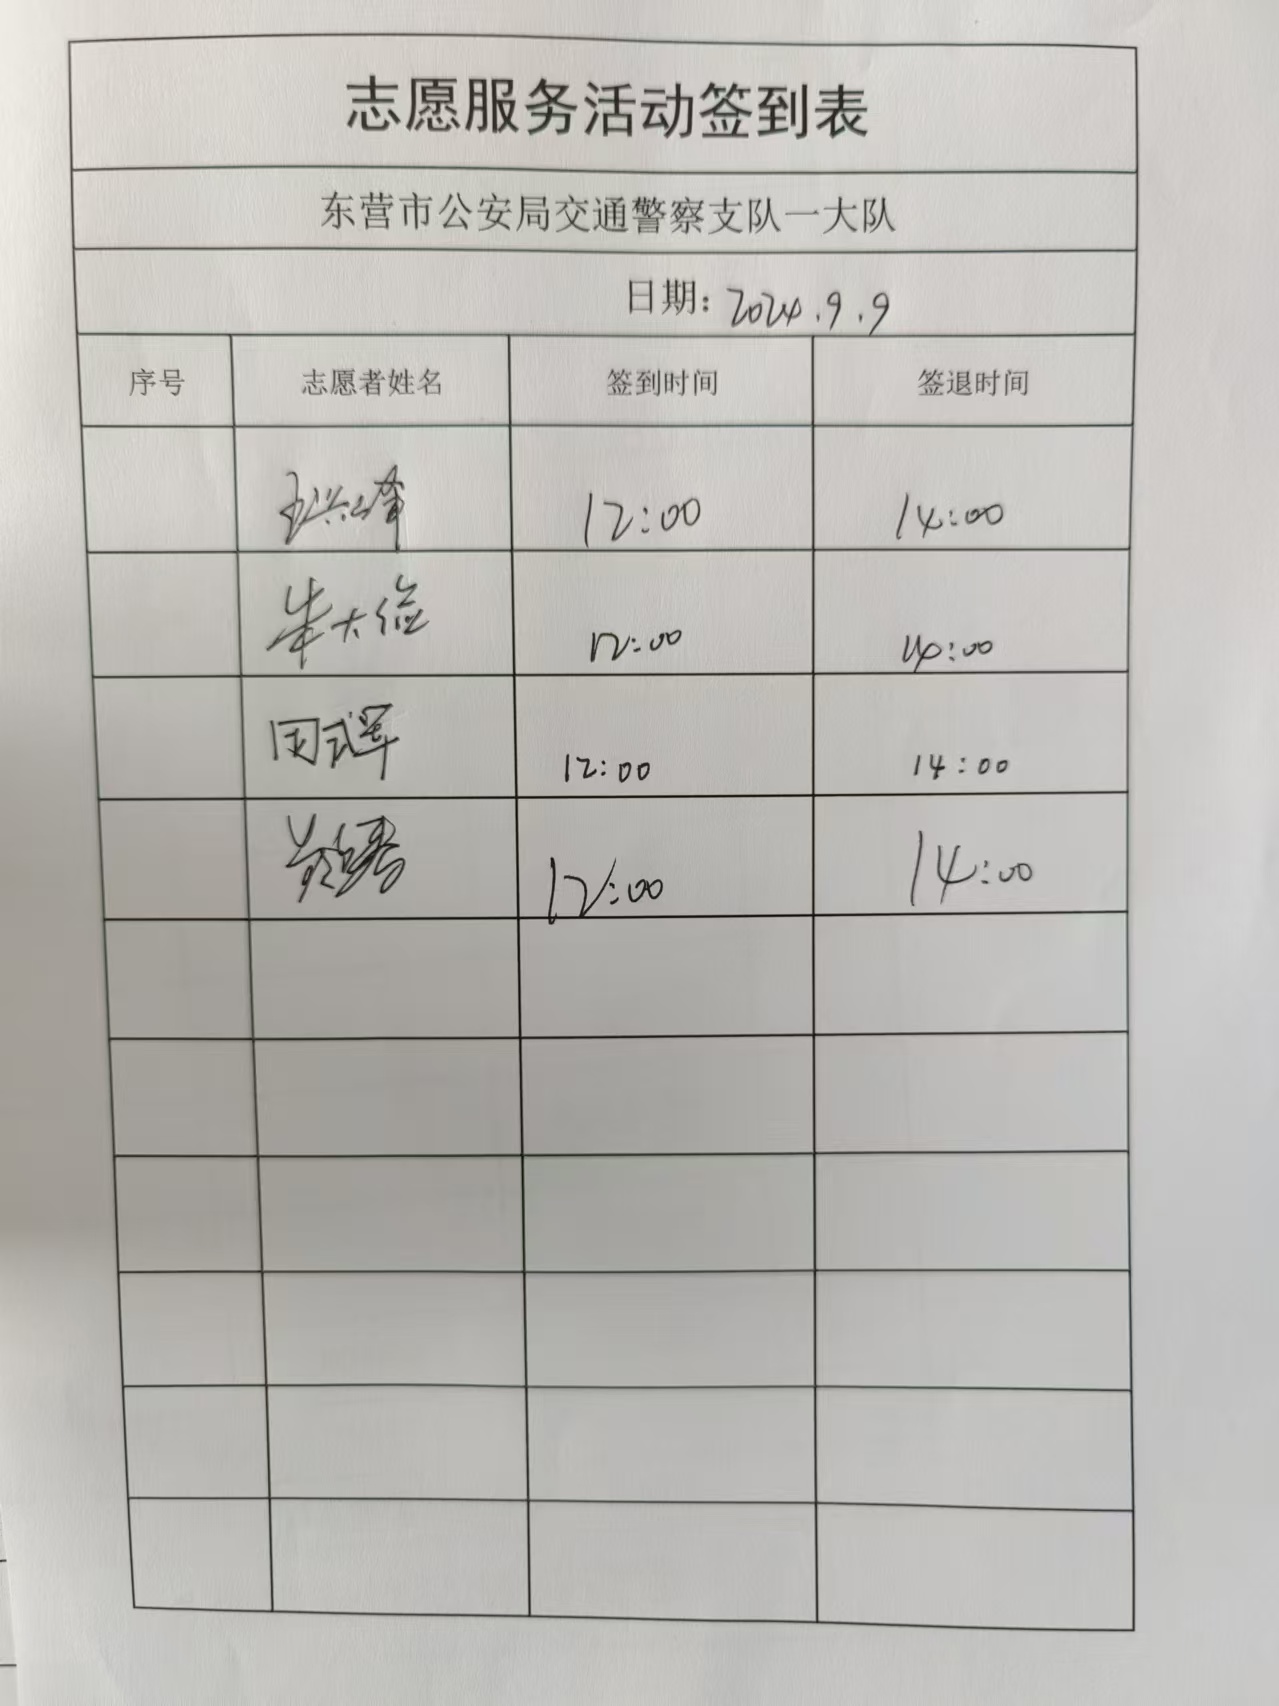 志愿服务活动签到表
东营市公安局交通警察支队一大队
日期：2024.9.9
序号 志愿者姓名 签到时间 签退时间
王兴峰 12:00 14:00
朱大俭 12:00 14:00
12:00 14:00
12:00 14:00